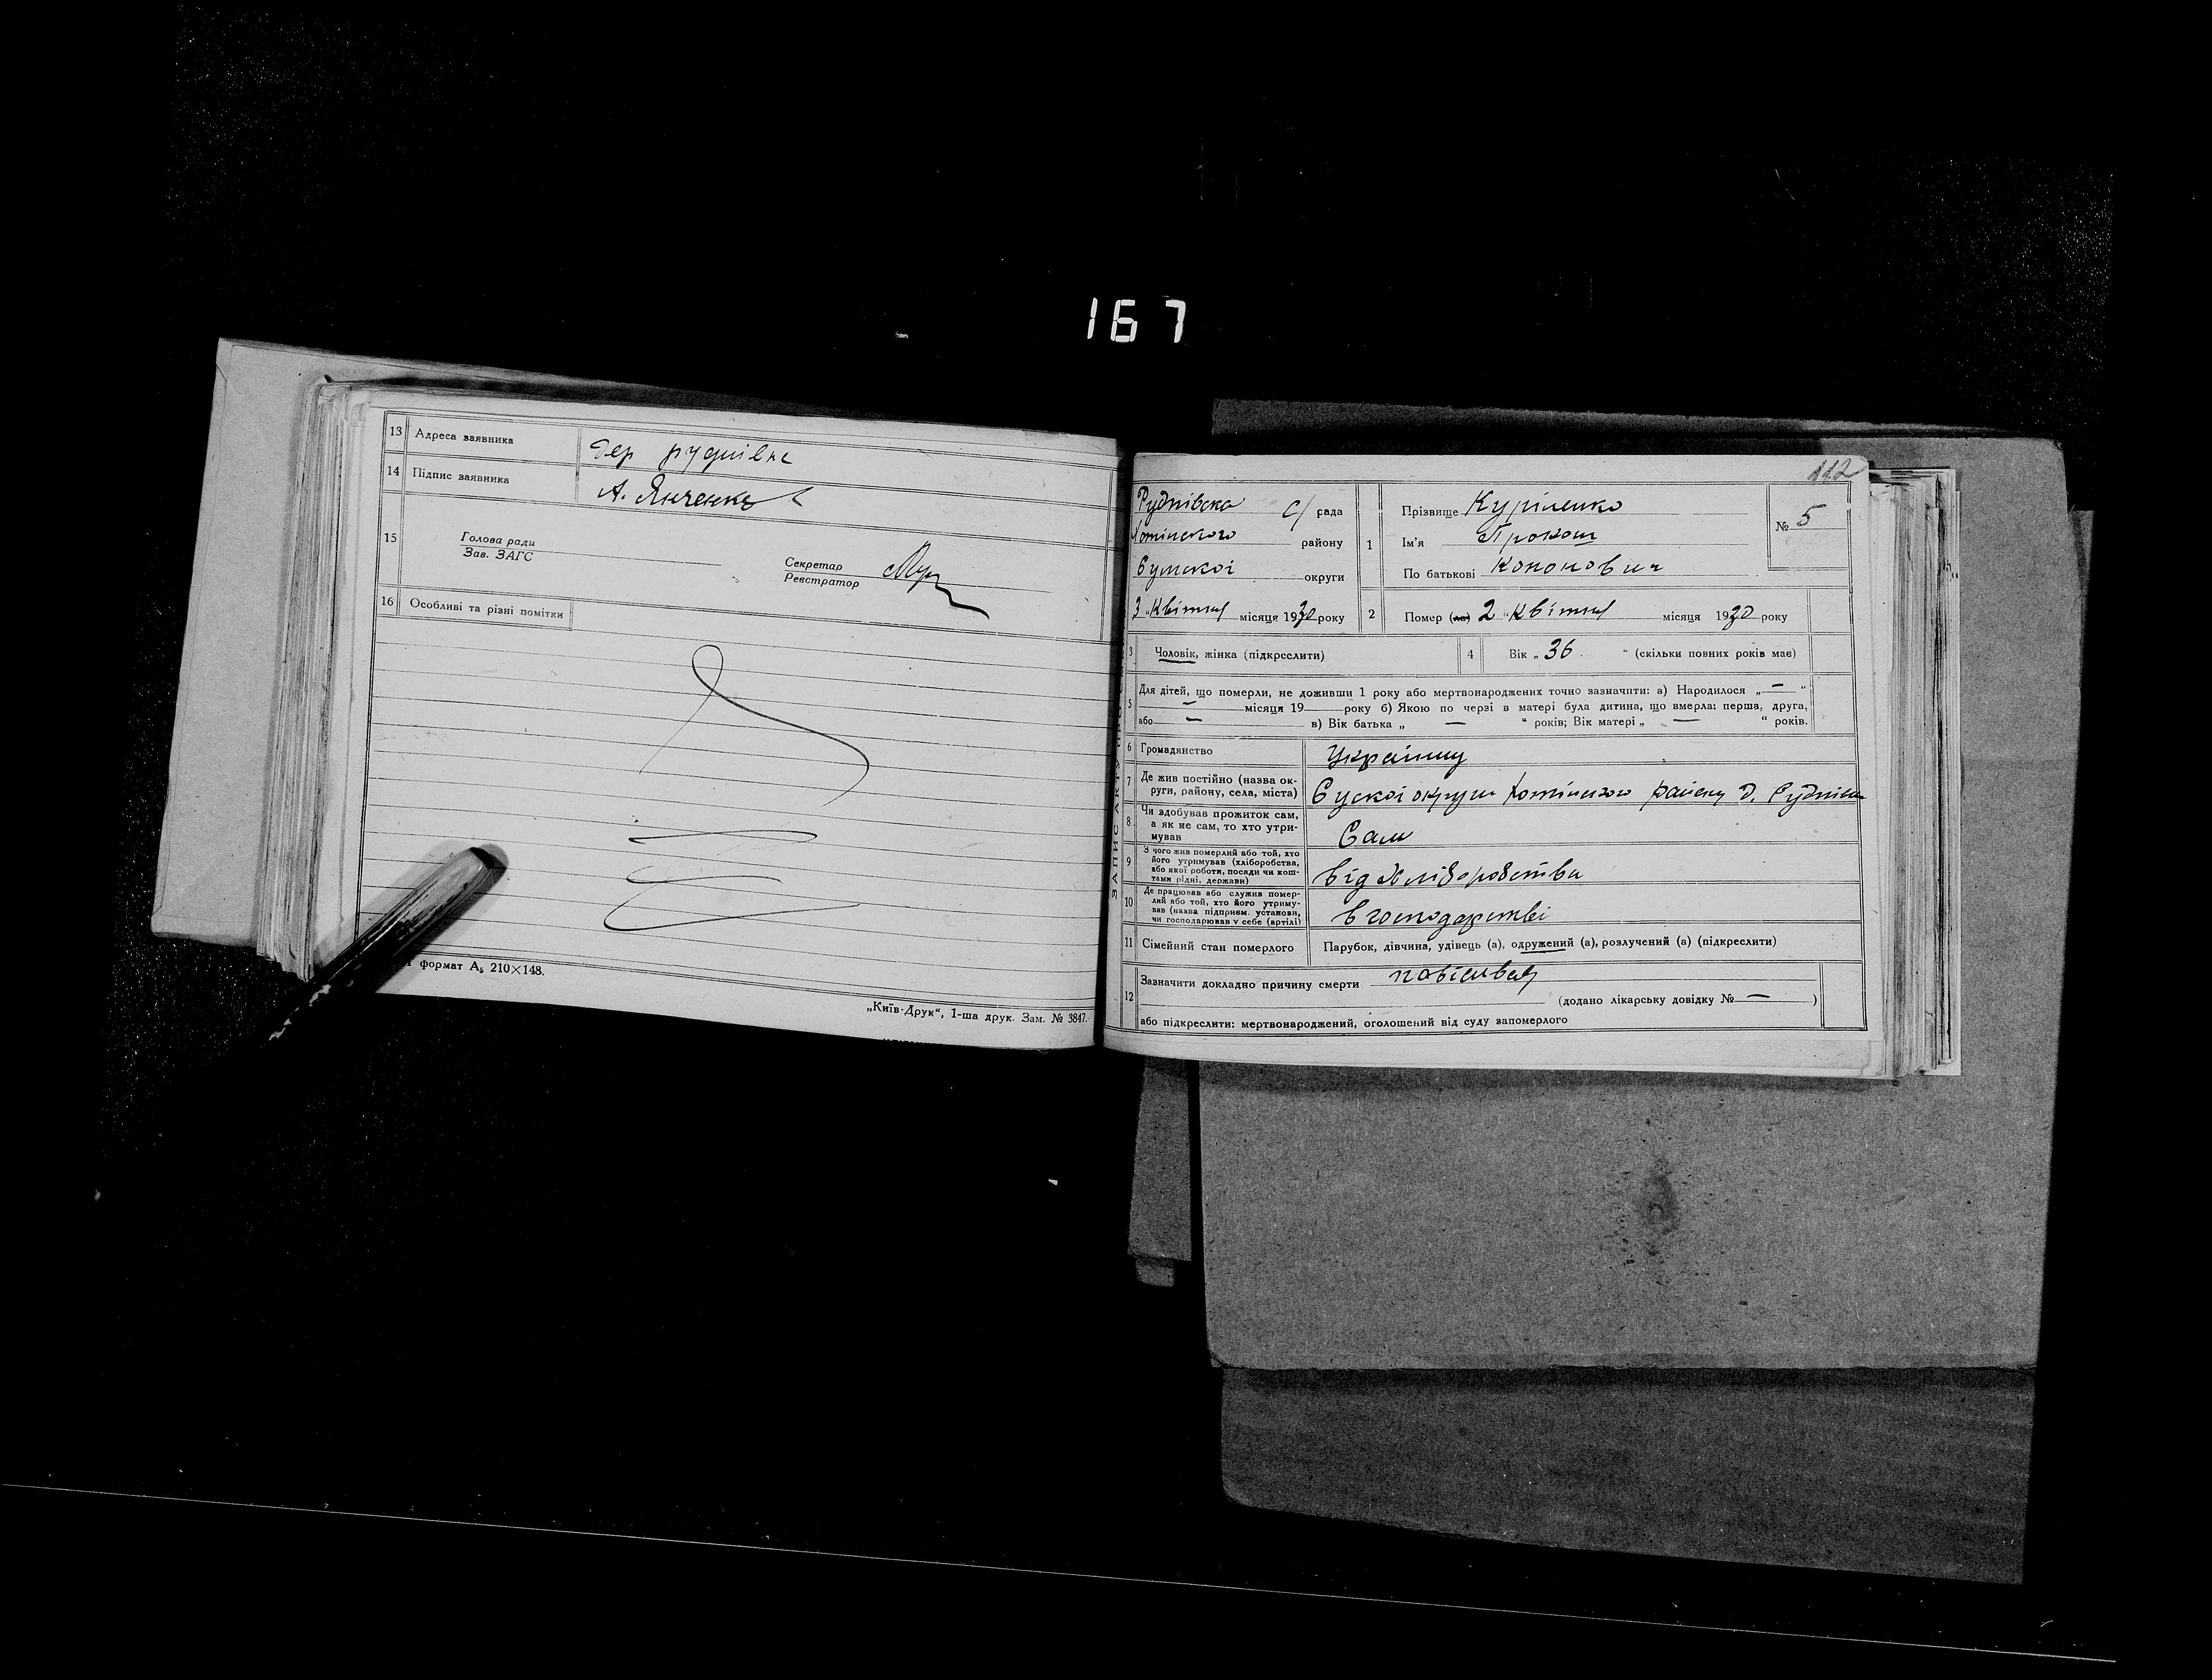 167
13 Адреса заявника дер руднівка
14 Підпис заявника А. Янченко
15 Голова ради
Зав. ЗАГС
Секретар
Реєстратор
16 Особливі та різні помітки
формат А₅ 210×148.
„Київ-Друк“, 1-ша друк. Зам. № 3847.
112
Руднівска с/ рада
Хотінского району
Сумскої округи
3 „Квітня місяця 1930 року
1 Прізвище Куріленко
Ім'я Прокоп
По батькові Кононович
№ 5
2 Помер (ла) 2 “ Квітня місяця 1930 року
3 Чоловік, жінка (підкреслити)
4 Вік „ 36 “ (скільки повних років має)
5 Для дітей, що померли, не доживши 1 року або мертвонароджених точно зазначити: а) Народилося „ — “
— місяця 19 року б) Якою по черзі в матері була дитина, що вмерла: перша, друга,
або — в) Вік батька „ — “ років; Вік матері „ — “ років.
6 Громадянство
7 Де жив постійно (назва ок-
руги, району, села, міста) Суской округи Хотінского району д. Руднівка
8 Чи здобував прожиток сам,
а як не сам, то хто утри-
мував Сам
9 З чого жив померлий або той, хто
його утримував (хліборобства,
або якої роботи, посади чи кош-
тами рідні, держави) від хліборобства
10 Де працював або служив помер-
лий або той, хто його утриму-
вав (назва підприєм. установи,
чи господарював у себе (артілі) в господарстві
11 Сімейний стан померлого Парубок, дівчина, удівець (а), одружений (а), розлучений (а) (підкреслити)
12 Зазначити докладно причину смерти
(додано лікарську довідку № — )
або підкреслити: мертвонароджений, оголошений від суду запомерлого